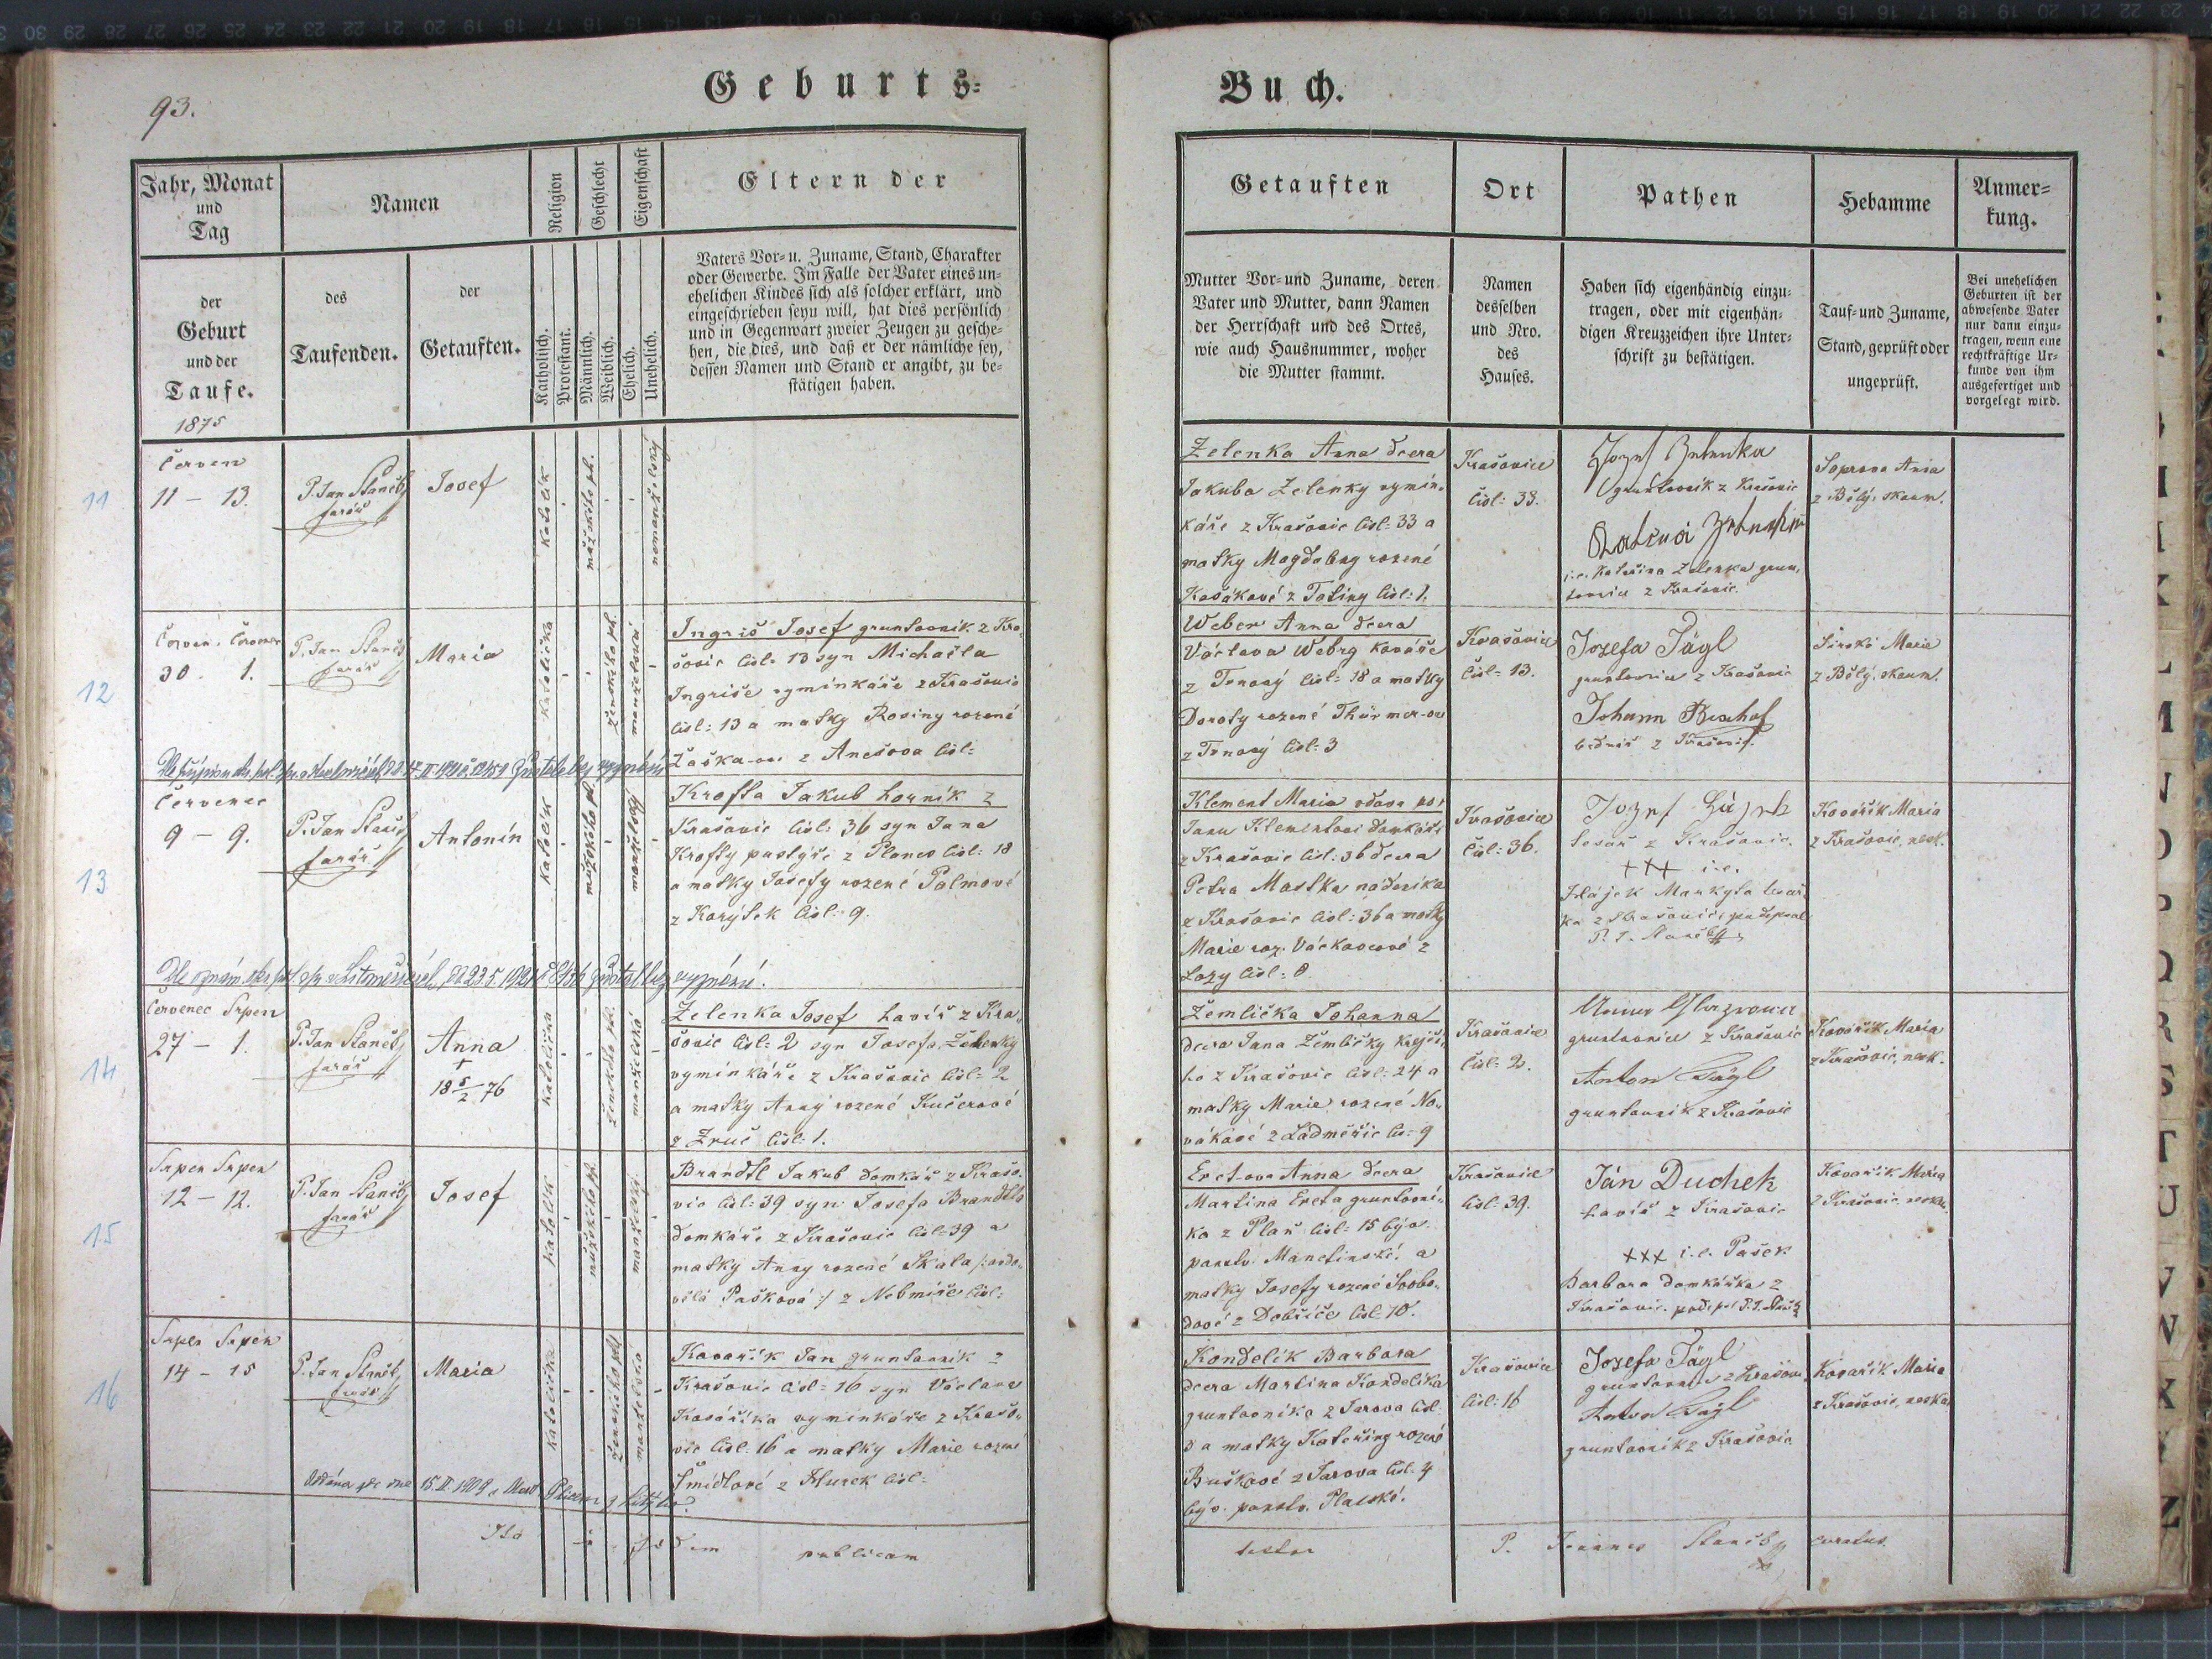 93.
Geburts=
Buch.
Jahr, Monat
und
Tag
der
Geburt
und der
Taufe.
1875
Namen
des
Taufenden.
der
Getauften.
Religion
Katholisch.
Protestant.
Geschlecht
Männlich.
Weiblich.
Eigenschaft
Ehelich.
Unehelich.
Eltern der
Vaters Vor= u. Zuname, Stand, Charakter
oder Gewerbe. Im Falle der Vater eines un=
ehelichen Kindes sich als solcher erklärt, und
eingeschrieben seyn will, hat dies persönlich
und in Gegenwart zweier Zeugen zu gesche=
hen, die dies, und daß er der nämliche sey,
dessen Namen und Stand er angibt, zu be=
stätigen haben.
Getauften
Mutter Vor= und Zuname, deren
Vater und Mutter, dann Namen
der Herrschaft und des Ortes,
wie auch Hausnummer, woher
die Mutter stammt.
Ort
Namen
desselben
und Nro.
des
Hauses.
Pathen
Haben sich eigenhändig einzu=
tragen, oder mit eigenhän=
digen Kreuzzeichen ihre Unter=
schrift zu bestätigen.
Hebamme
Tauf= und Zuname,
Stand, geprüft oder
ungeprüft.
Anmer=
kung.
Bei unehelichen
Geburten ist der
abwesende Vater
nur dann einzu=
tragen, wenn eine
rechtkräftige Ur=
kunde von ihm
ausgefertiget und
vorgelegt wird.
11
Červen
11 – 13.
P. Jan Staněk
farář
Josef
katolík
mužského ph.
nemanželský
Zelenka Anna dcera
Jakuba Zelenky vymin=
káře z Krašovic čísl: 33 a
matky Magdaleny rozené
čísl: 1.
Krašovice
čísl: 33.
Jozef Zelenka
gruntovník z Krašovic
i.e. Kateřina Zelenka grun,
tovnice z Krašovic.
Anna
z Bělý, zkoum.
12
Červen, Červenec
30. 1.
P. Jan Staněk
farář
Maria
katolička
ženského ph.
manželská
Ingriš Josef gruntovník z Kra=
šovic čísl: 13 syn Michaela
Ingriše vyminkáře z Krašovic
čísl: 13 a matky Rosiny rozené
z Anešova čísl:
Weber Anna dcera
Václava Webrg kováře
z Trnový čísl: 18 a matky
Doroty rozené Thürmer-ove
z Trnový čísl: 3
Krašovice
čísl: 13.
Josefa Jägl
gruntovnice z Krašovic
Johann Bischof
bednář z Krašovic.
Široká Marie
z Bělý, zkoum.
13
Červenec
9 – 9.
P. Jan Staněk
farář
Antonín
katolík
mužského ph.
manželský
Krofta Jakub horník z
Krašovic čísl: 36 syn Jana
Krofty pastýře z Planes čísl: 18
a matky Josefy rozené Palmové
z Korýtek čísl: 9.
Klement Maria vdova po
Janu Klementovi domkáři
z Krašovic čísl: 36 dcera
Petra Mastka nádeníka
z Krašovic čísl: 36 a matky
Marie roz. Váckavcové z
Lozy čísl: 8
Krašovice
čísl: 36.
Jozef Hájek
tesař z Krašovic.
+++ i.e.
Hájek Markyta tesař=
ka z Krašovic podepsal
P. J. Staněk
Kovařík Maria
z Krašovic, nezk.
14
Červenec Srpen
27 – 1.
P. Jan Staněk
farář
Anna
+
18 5/2 76
katolička
ženského ph.
manželská
Zelenka Josef havíř z Kra=
šovic čísl: 2 syn Josefa Zelenky
vyminkáře z Krašovic čísl: 2
a matky Anny rozené Kučerové
z Zruč čísl: 1.
Žemlička Johanna
dcera Jana Žemličky krejčí,
ho z Krašovic čísl: 24 a
matky Marie rozené No=
vákové z Ladměřic čís: 9
Krašovice
čísl: 2.
gruntovnice z Krašovic
Anton Jägl
gruntovník z Krašovic
Kovařík Maria
z Krašovic, nezk.
15
Srpen Srpen
12 – 12.
P. Jan Staněk
farář
Josef
katolík
mužského ph.
manželský
Brandtl Jakub domkář z Krašo=
vic čísl: 39 syn Josefa Brandtla
domkáře z Krašovic čísl: 39 a
matky Anny rozené Skala /: ovdo=
vělá Pašková :/ z Nebmíře čísl:
Eret-ova Anna dcera
Martina Ereta gruntovní=
ka z Plaň čísl: 15 býv.
panstv. Manetinské, a
matky Josefy rozené Svobo=
dové z Dobříče čísl: 10.
Krašovice
čísl: 39.
Ján Duchek
havíř z Krašovic
+++ i.e. Pašek
Barbora domkářka z
Krašovic. podeps P. J. Staněk
Kovařík Maria
z Krašovic, nezk.
16
Srpen Srpen
14 – 15
P. Jan Staněk
farář
Maria
katolička
ženského ph.
manželská
Kovařík Jan gruntovník z
Krašovic čísl: 16 syn Václava
Kovaříka vyminkáře z Krašo=
vic čísl: 16 a matky Marie rozené
Šmídlové z Hurek čísl:
Kondelík Barbora
dcera Martina Kondelíka
gruntovníka z Jarova čísl:
3 a matky Kateřiny rozené
Buškové z Jarova čísl: 4
býv. panstv. Plaiské.
Krašovice
čísl: 16
Josefa Jägl
gruntovnice z Krašovic
Anton Jägl
gruntovník z Krašovic
Kovařík Maria
z Krašovic, nezk.
Ita in fidem publicam
testor P. Joannes Staněk curatus.